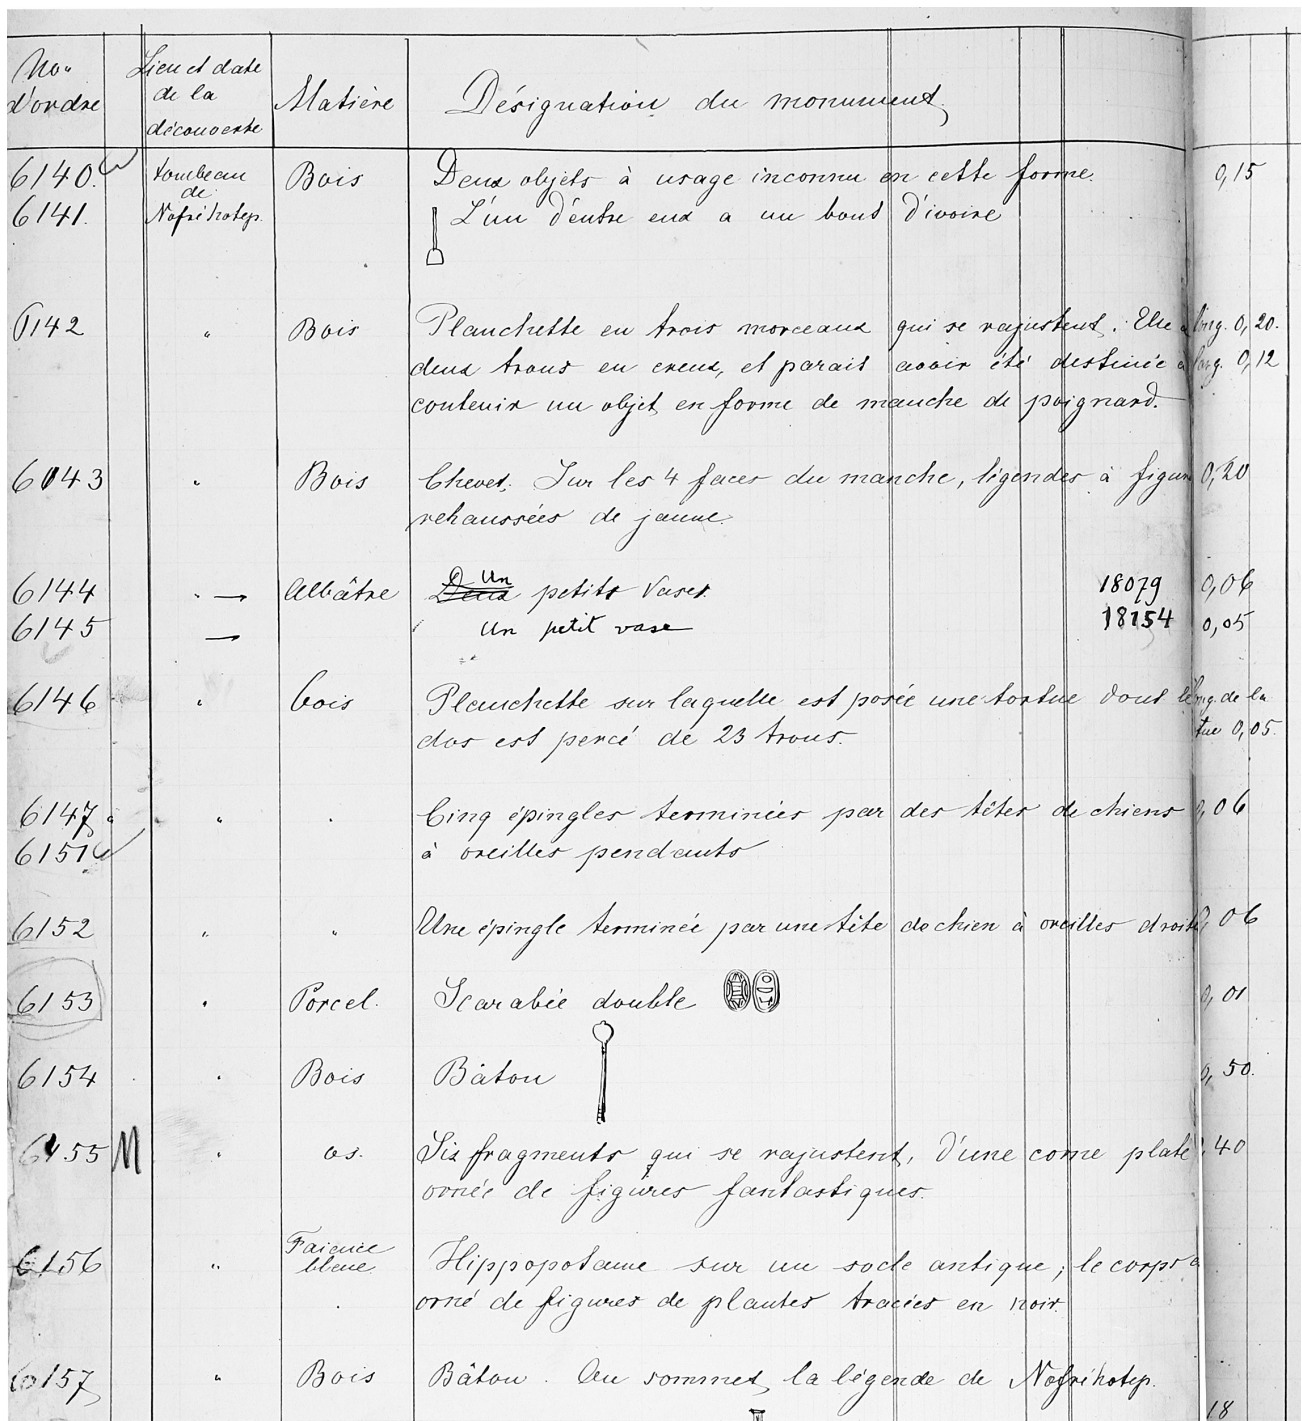 Nos d'ordre | Lieu et date de la découverte | Matière | Désignation du monument
6140. | tombeau de | Bois | Deux objets à usage inconnu en cette forme. | 0,15
6141. | Nofrihotep. | L'un d'entre eux a un bout d'ivoire
6142 | " | Bois | Planchette en trois morceaux qui se rajustent. Elle a | long. 0,20.
deux trous en creux, et parait avoir été destinée à | larg. 0,12
contenir un objet en forme de manche de poignard.
6143 | " | Bois | Chevet. Sur les 4 faces du manche, légendes à figures | 0,20
rehaussées de jaune.
6144 | " → | Albâtre | Deux Un petits vases. | 18079 | 0,06
6145 | → | Un petit vase | 18154 | 0,05
6146 | " | bois | Planchette sur laquelle est posée une tortue dont le | long. de la
dos est percé de 23 trous. | tue 0,05.
6147 à | " | " | Cinq épingles terminées par des têtes de chiens | 0,06
6151 | à oreilles pendants
6152 | " | " | Une épingle terminée par une tête de chien à oreilles droites | 0,06
6153 | " | Porcel. | Scarabée double | 0,01
6154 | " | Bois | Bâton | 0,50.
6155 | M | " | os. | Six fragments qui se rajustent, d'une corne plate | 0,40
ornée de figures fantastiques.
6156 | " | Faience bleue | Hippopotame sur un socle antique; le corps a
orné de figures de plantes tracées en noir.
6157 | " | Bois | Bâton. Au sommet, la légende de Nofrihotep.
18